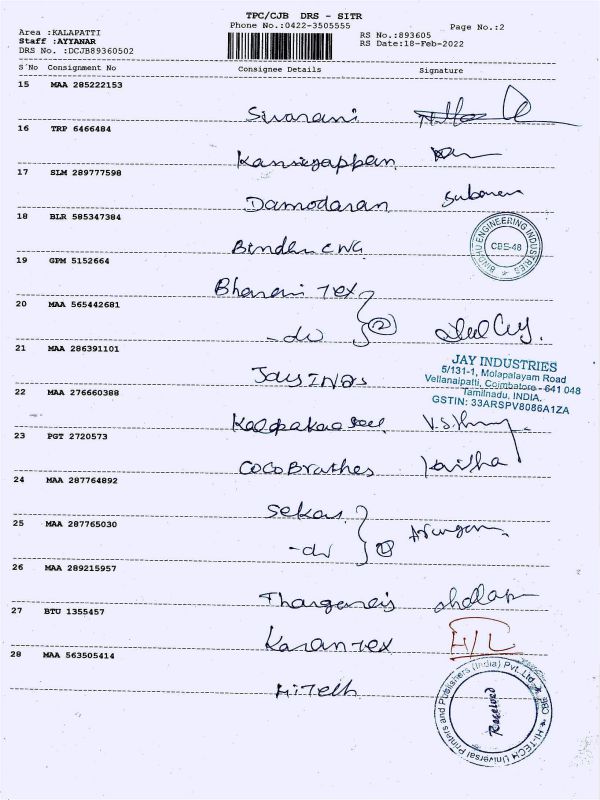 TPC/CJB DRS - SITR
Phone No.:0422-3505555
Page No.:2
Area :KALAPATTI
Staff :AYYANAR
DRS No. :DCJB89360502
RS No.:893605
RS Date:18-Feb-2022
S'No Consignment No Consignee Details Signature
15 MAA 285222153
Sivarani
16 TRP 6466484
Kanniyappan
17 SLM 289777598
Damodaran
18 BLR 585347384
Bindhu ENG
BINDHU ENGINEERING INDUSTRIES
CBE-48
19 GPM 5152664
Bharani Tex
20 MAA 565442681
-do 2
21 MAA 286391101
Jay INDS
JAY INDUSTRIES
5/131-1, Molapalayam Road
Vellanaipatti, Coimbatore - 641 048
Tamilnadu, INDIA.
GSTIN: 33ARSPV8086A1ZA
22 MAA 276660388
23 PGT 2720573
Coco Brothes
24 MAA 287764892
Sekar
25 MAA 287765030
-do
26 MAA 289215957
27 BTU 1355457
Karan Tex
H/L
28 MAA 563505414
HiTech
HI-TECH Universal Printers and Publishers (India) Pvt. Ltd.
Received